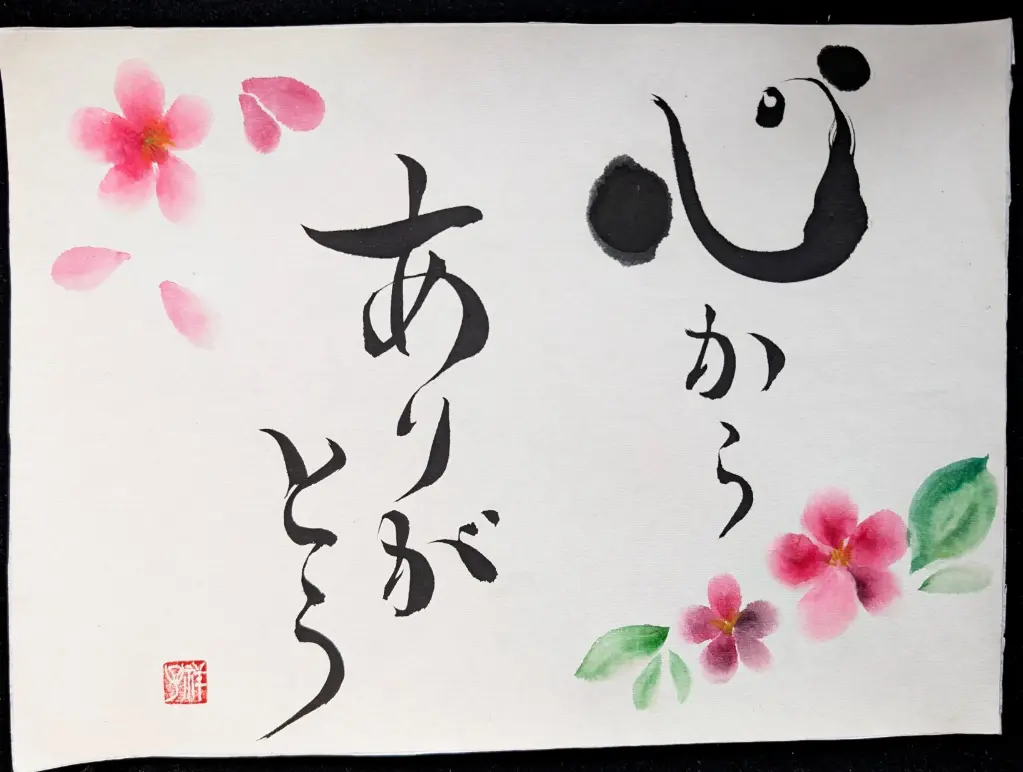 心から
ありが
とう